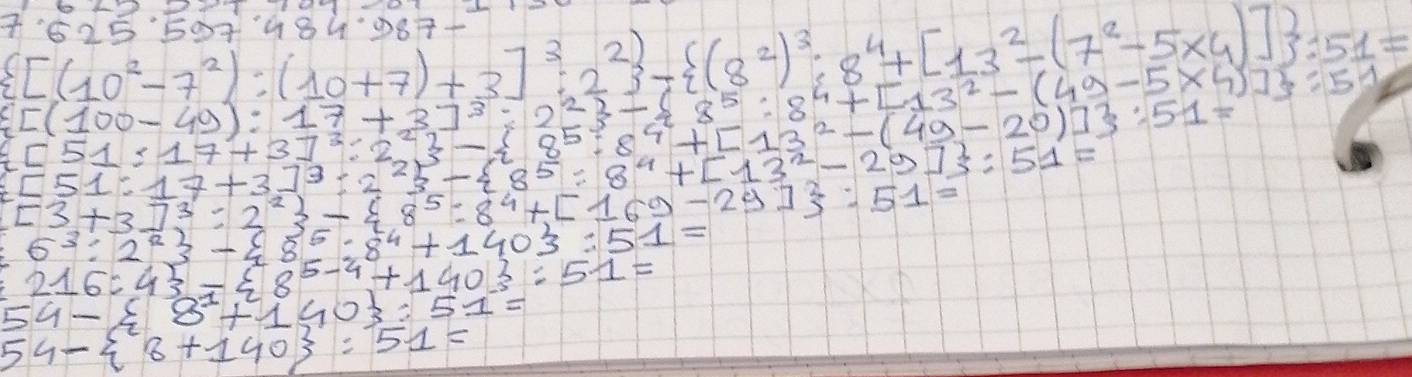 7 625 597 484 987 -
{[(10² - 7²) : (10 + 7) + 3]³ : 2²} - {(8²)³ : 8⁴ + [13² - (7² - 5 × 4)]} : 51 =
{[(100 - 49) : 17 + 3]³ : 2²} - {8⁵ : 8⁴ + [13² - (49 - 5 × 4)]} : 51
{[51 : 17 + 3]³ : 2²} - {8⁵ : 8⁴ + [13² - (49 - 20)]} : 51 =
{[51 : 17 + 3]³ : 2²} - {8⁵ : 8⁴ + [13² - 29]} : 51 =
[3 + 3]³ : 2²} - {8⁵ : 8⁴ + [169 - 29]} : 51 =
6³ : 2²} - {8⁵ : 8⁴ + 140} : 51 =
216 : 4} - {8⁵⁻⁴ + 140} : 51 =
54 - {8¹ + 140} : 51 =
54 - {8 + 140} : 51 =